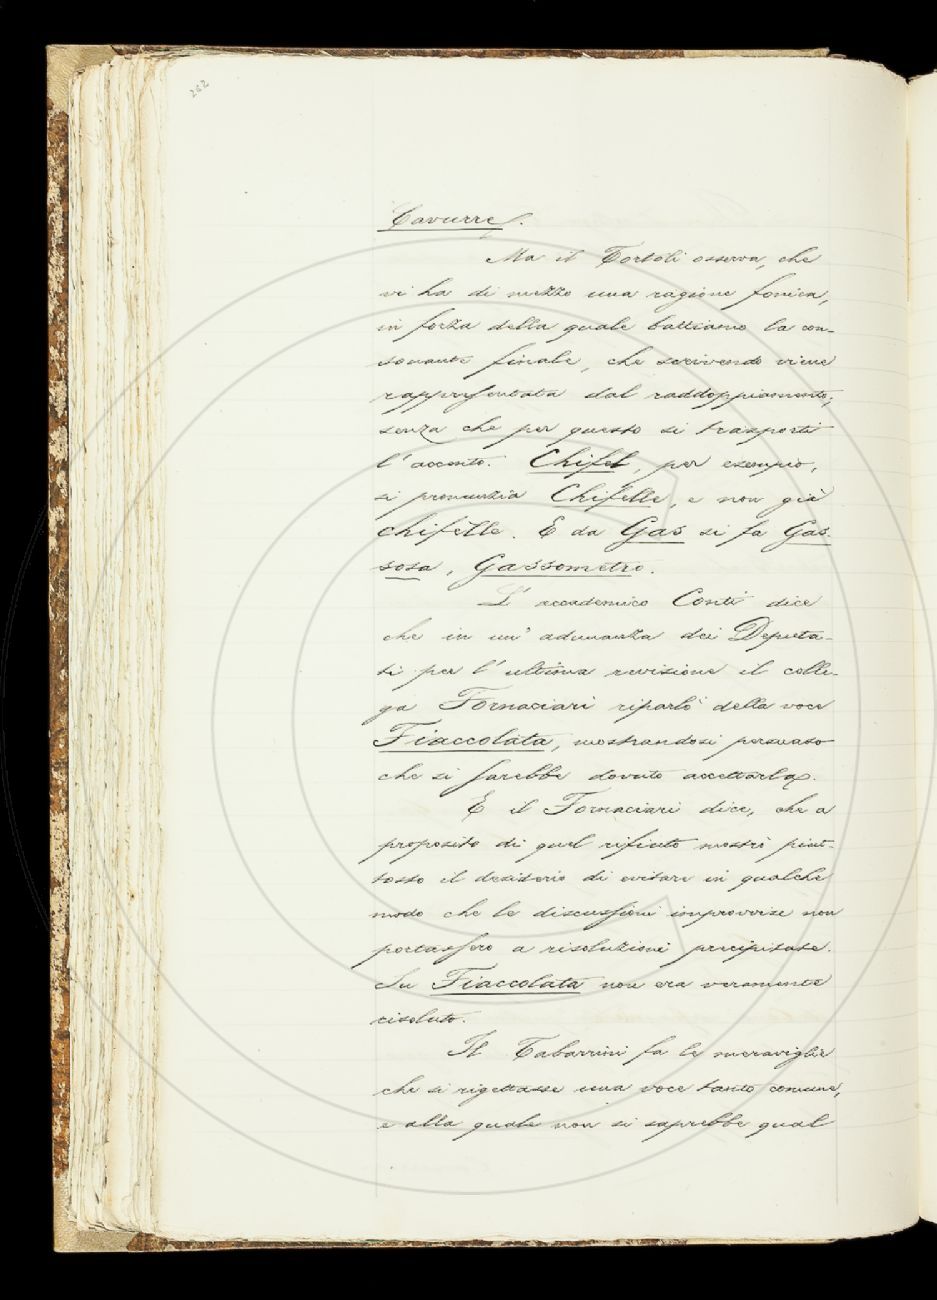 262
Cavurre.
Ma il Tortoli osserva, che
vi ha di mezzo una ragione fonica,
in forza della quale battiamo la con-
sonante finale, che scrivendo viene
rappresentata dal raddoppiamento;
senza che per questo si trasporti
l'accento. Chifel, per esempio,
si pronunzia Chifelle, e non già
chifèlle. E da Gas si fa Gas-
sosa, Gassometro.
L'accademico Conti dice
che in un'adunanza dei Deputa-
ti per l'ultima revisione il colle-
ga Fornaciari riparlò della voce
Fiaccolata, mostrandosi persuaso
che si sarebbe dovuto accettarla.
E il Fornaciari dice, che a
proposito di quel rifiuto mostrò piut-
tosto il desiderio di evitare in qualche
modo che le discussioni improvvise non
portassero a risoluzioni precipitate.
Su Fiaccolata non era veramente
risoluto.
Il Tabarrini fa le meraviglie
che si rigettasse una voce tanto comune,
e alla quale non si saprebbe qual